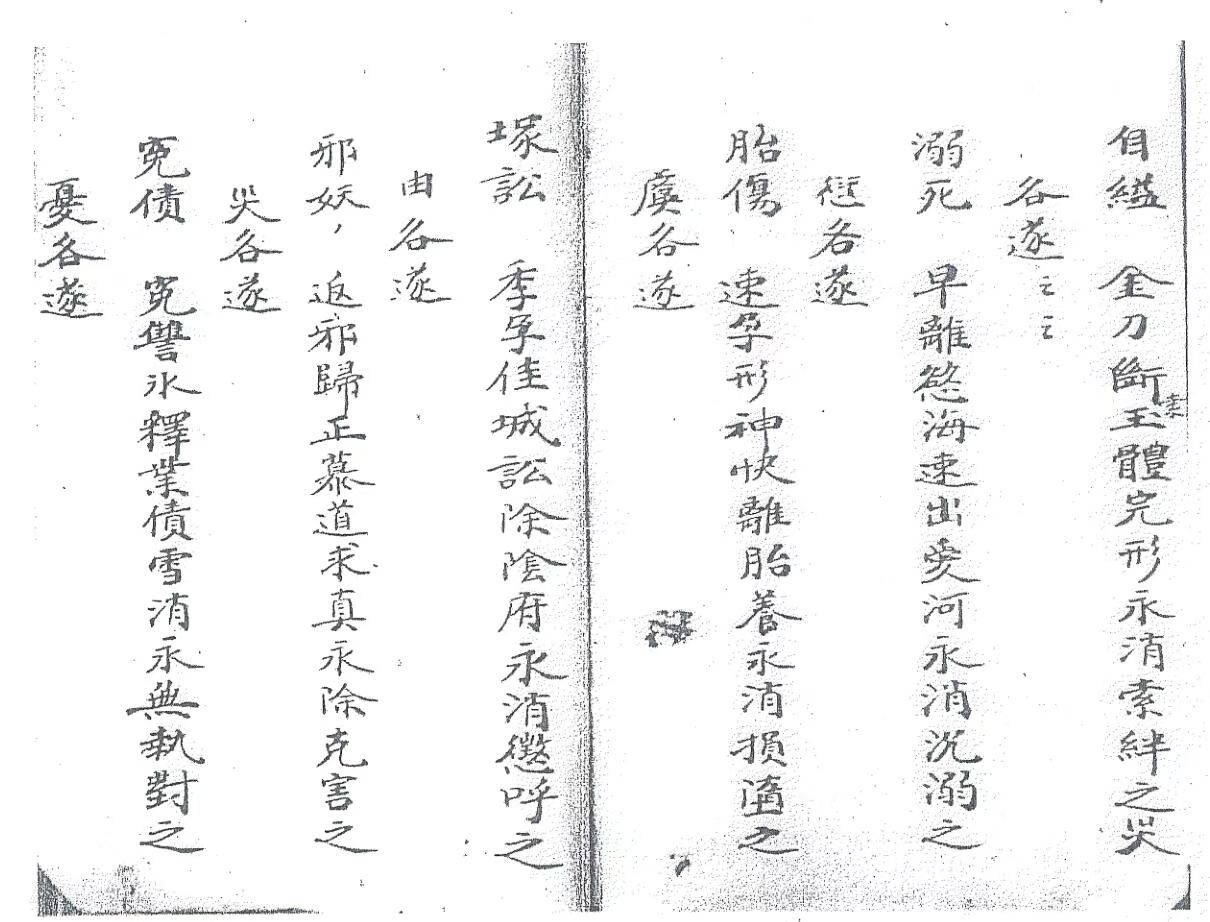 自縊　金刀斷玉體完形永消索絆之災
索
各遂〻〻
溺死　早離慾海速出愛河永消沉溺之
愆各遂
胎傷　速孕形神快離胎養永消損墮之
虞各遂
塚訟　季孚佳城訟除陰府永消懲呼之
由各遂
邪妖，返邪歸正慕道求真永除克害之
災各遂
冤債　冤讐氷釋業債雪消永無執對之
憂各遂